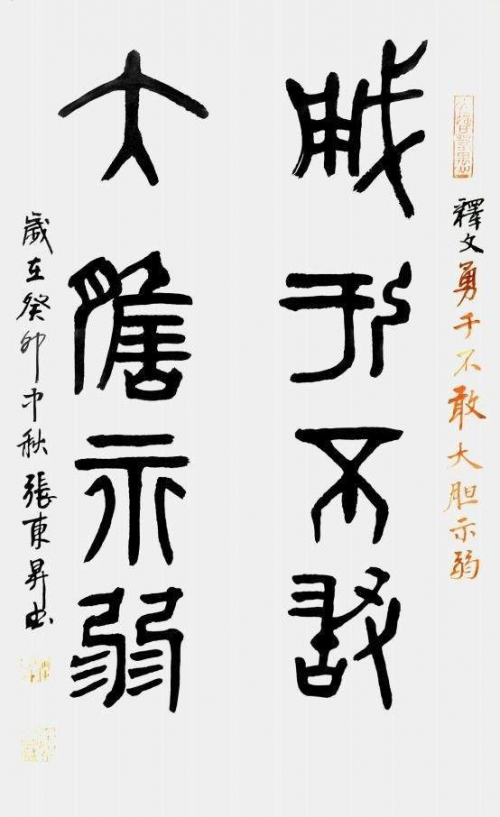 釋文勇于不敢大胆示弱
勇于不敢
大膽示弱
歲在癸卯中秋張東昇书